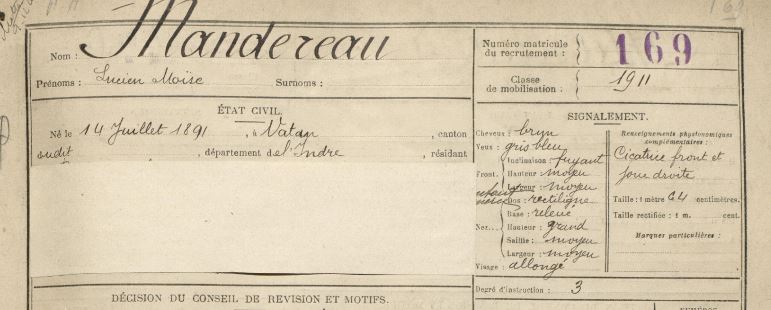 Nom : Mandereau
Prénoms : Lucien Moïse Surnoms :
Numéro matricule du recrutement : 169
Classe de mobilisation : 1911
ÉTAT CIVIL.
Né le 14 Juillet 1891, à Vatan, canton
dudit, département de l'Indre, résidant
SIGNALEMENT.
Cheveux : brun
Yeux : gris bleu
Front. Inclinaison : fuyant
Hauteur : moyen
Largeur : moyen
Nez... Dos : rectiligne
Base : relevé
Hauteur : grand
Saillie : moyen
Largeur : moyen
Visage : allongé
Renseignements physionomiques complémentaires :
Cicatrice front et
joue droite
Taille : 1 mètre 64 centimètres.
Taille rectifiée : 1 m. cent.
Marques particulières :
Degré d'instruction : 3
DÉCISION DU CONSEIL DE REVISION ET MOTIFS.